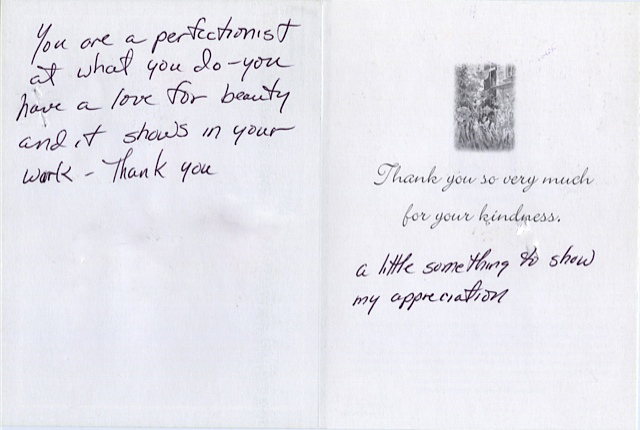 You are a perfectionist
at what you do - you
have a love for beauty
and it shows in your
work - Thank you
Thank you so very much
for your kindness.
a little something to show
my appreciation